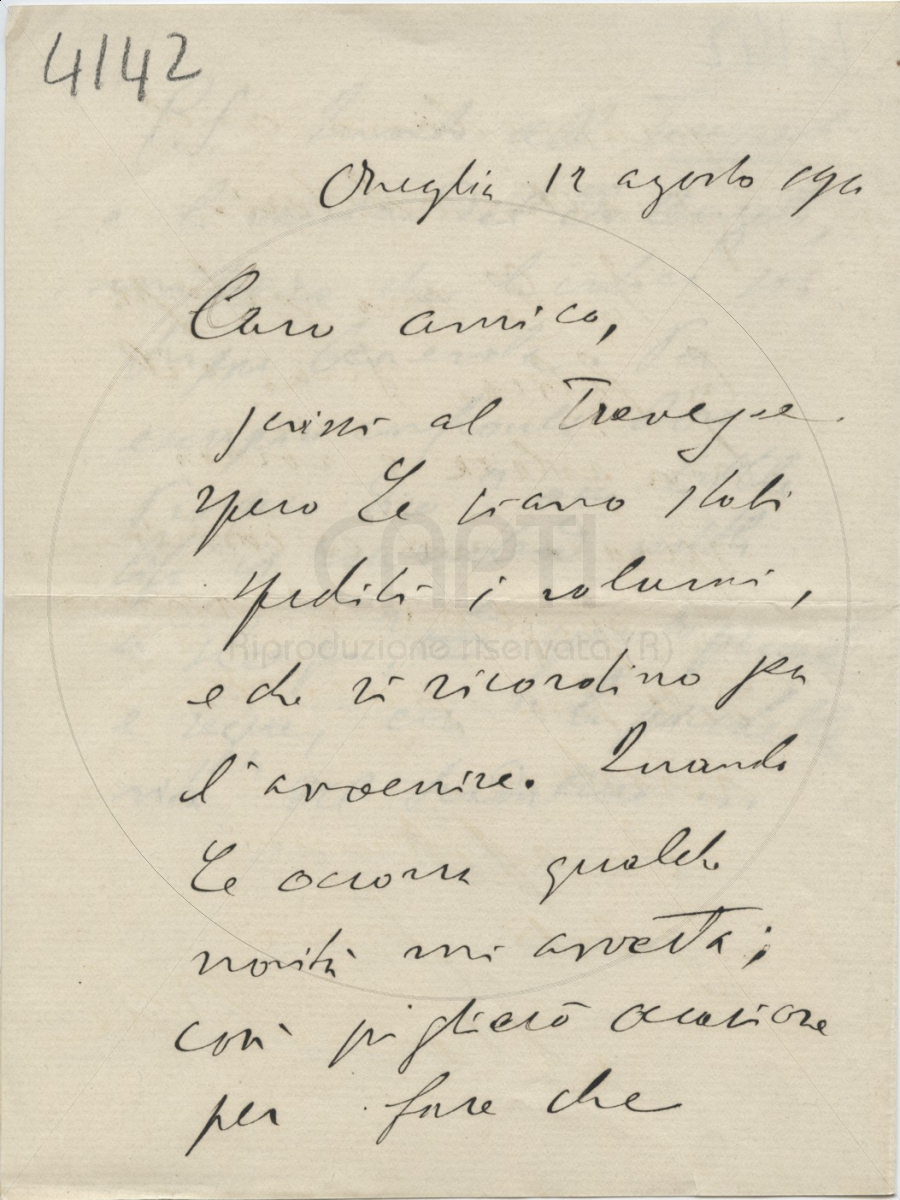 4142
Oneglia 12 agosto
Caro amico,
scrissi al Treves, e
spero Le siano stati
spediti i volumi,
e che si ricordino per
l'avvenire. Quando
Le occorra qualche
novità mi avverta;
così piglierò occasione
per fare che
CAPTI
Riproduzione riservata (R)